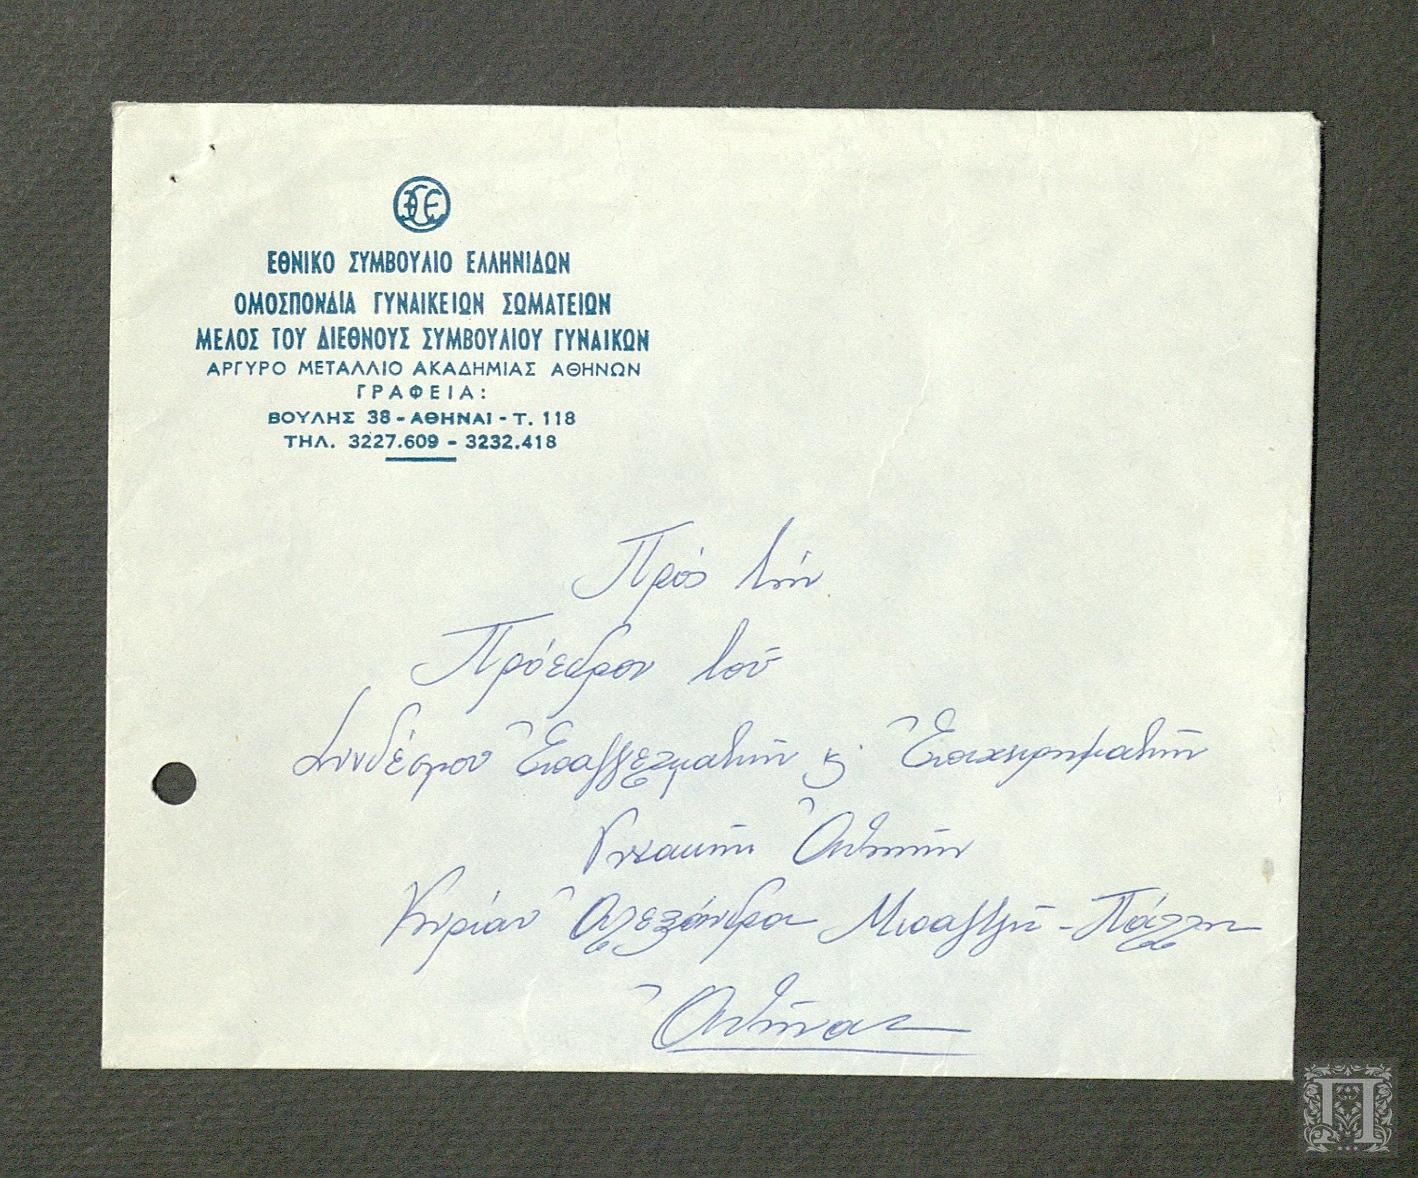 ΕΘΝΙΚΟ ΣΥΜΒΟΥΛΙΟ ΕΛΛΗΝΙΔΩΝ
ΟΜΟΣΠΟΝΔΙΑ ΓΥΝΑΙΚΕΙΩΝ ΣΩΜΑΤΕΙΩΝ
ΜΕΛΟΣ ΤΟΥ ΔΙΕΘΝΟΥΣ ΣΥΜΒΟΥΛΙΟΥ ΓΥΝΑΙΚΩΝ
ΑΡΓΥΡΟ ΜΕΤΑΛΛΙΟ ΑΚΑΔΗΜΙΑΣ ΑΘΗΝΩΝ
ΓΡΑΦΕΙΑ:
ΒΟΥΛΗΣ 38 - ΑΘΗΝΑΙ - Τ. 118
ΤΗΛ. 3227.609 - 3232.418
Πρός τήν
Πρόεδρον τοῦ
Συνδέσμου Ἐπαγγελματιῶν κ. Ἐπιχειρηματιῶν
Γυναικῶν Ἀθηνῶν
Κυρίαν Ἀλεξάνδρα Πάλλη
Ἀθήνας
Π